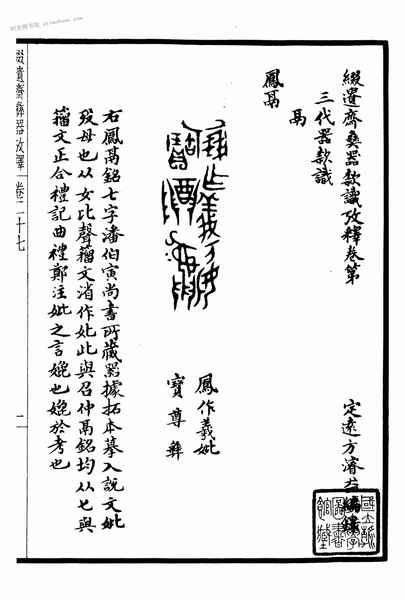 綴遺齋彝器款識攷釋卷第
定遠方濬益編錄
三代器款識
鬲
鳳鬲
鳳作羲妣
寶尊彝
右鳳鬲銘七字潘伯寅尚書所藏器據拓本摹入說文妣
歿母也从女比聲籀文渻作妣此與召仲鬲銘均从匕與
籀文正合禮記曲禮鄭注妣之言媲也媲於考也
綴遺齋彝器攷釋 卷二十七
一